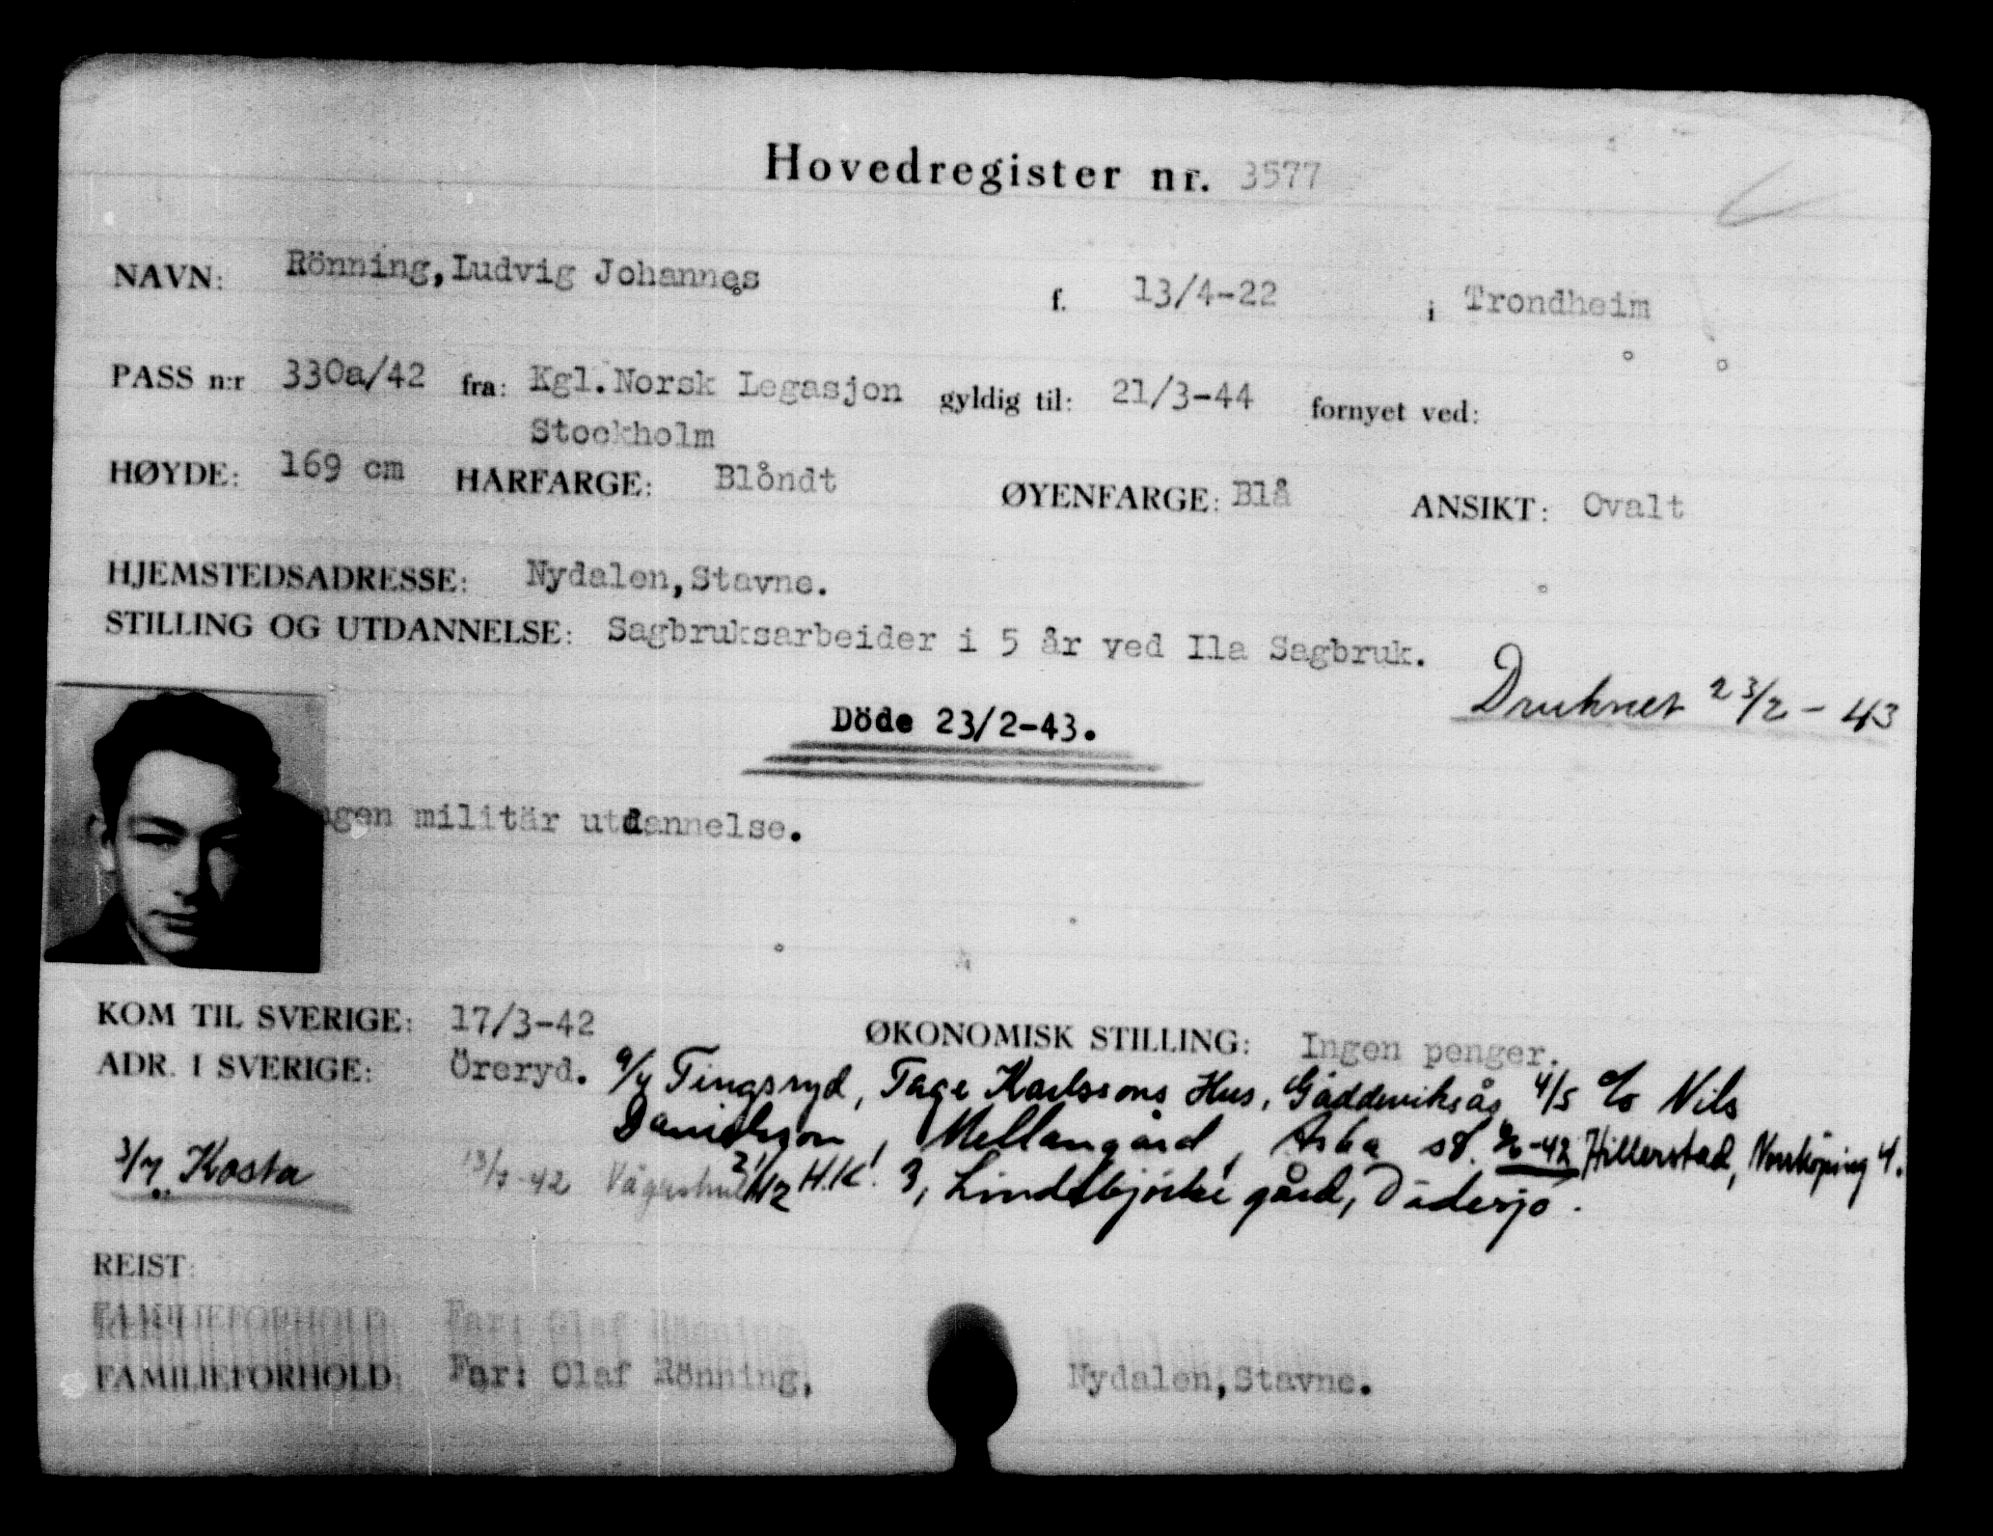 Hovedregister nr. 3577
NAVN: Rönning, Ludvig Johannes f. 13/4-22 i Trondheim
PASS n:r 330a/42 fra: Kgl. Norsk Legasjon gyldig til: 21/3-44 fornyet ved:
Stockholm
HØYDE: 169 cm HARFARGE: Blåndt ØYENFARGE: Blå ANSIKT: Ovalt
HJEMSTEDSADRESSE: Nydalen, Stavne.
STILLING OG UTDANNELSE: Sagbruksarbeider i 5 år ved Ila Sagbruk.
Döde 23/2-43.
Druknet 23/2-43
ngen militär utdannelse.
KOM TIL SVERIGE: 17/3-42 ØKONOMISK STILLING: Ingen penger.
ADR. I SVERIGE: Öreryd. 9/4 Tingsryd, Tage Karlssons Hus, Gäddeviksås 4/5 c/o Nils
Danielsson, Mellangård, Asba st. -42 Hillerstad, Norrköping 4.
3/7 Kosta 13/9-42 21/12 H.K. 3, Lindebjörke gård, Dädesjö.
REIST:
FAMILIEFORHOLD: Far: Olaf Rönning,
FAMILIEFORHOLD: Far: Olaf Rönning, Nydalen, Stavne.